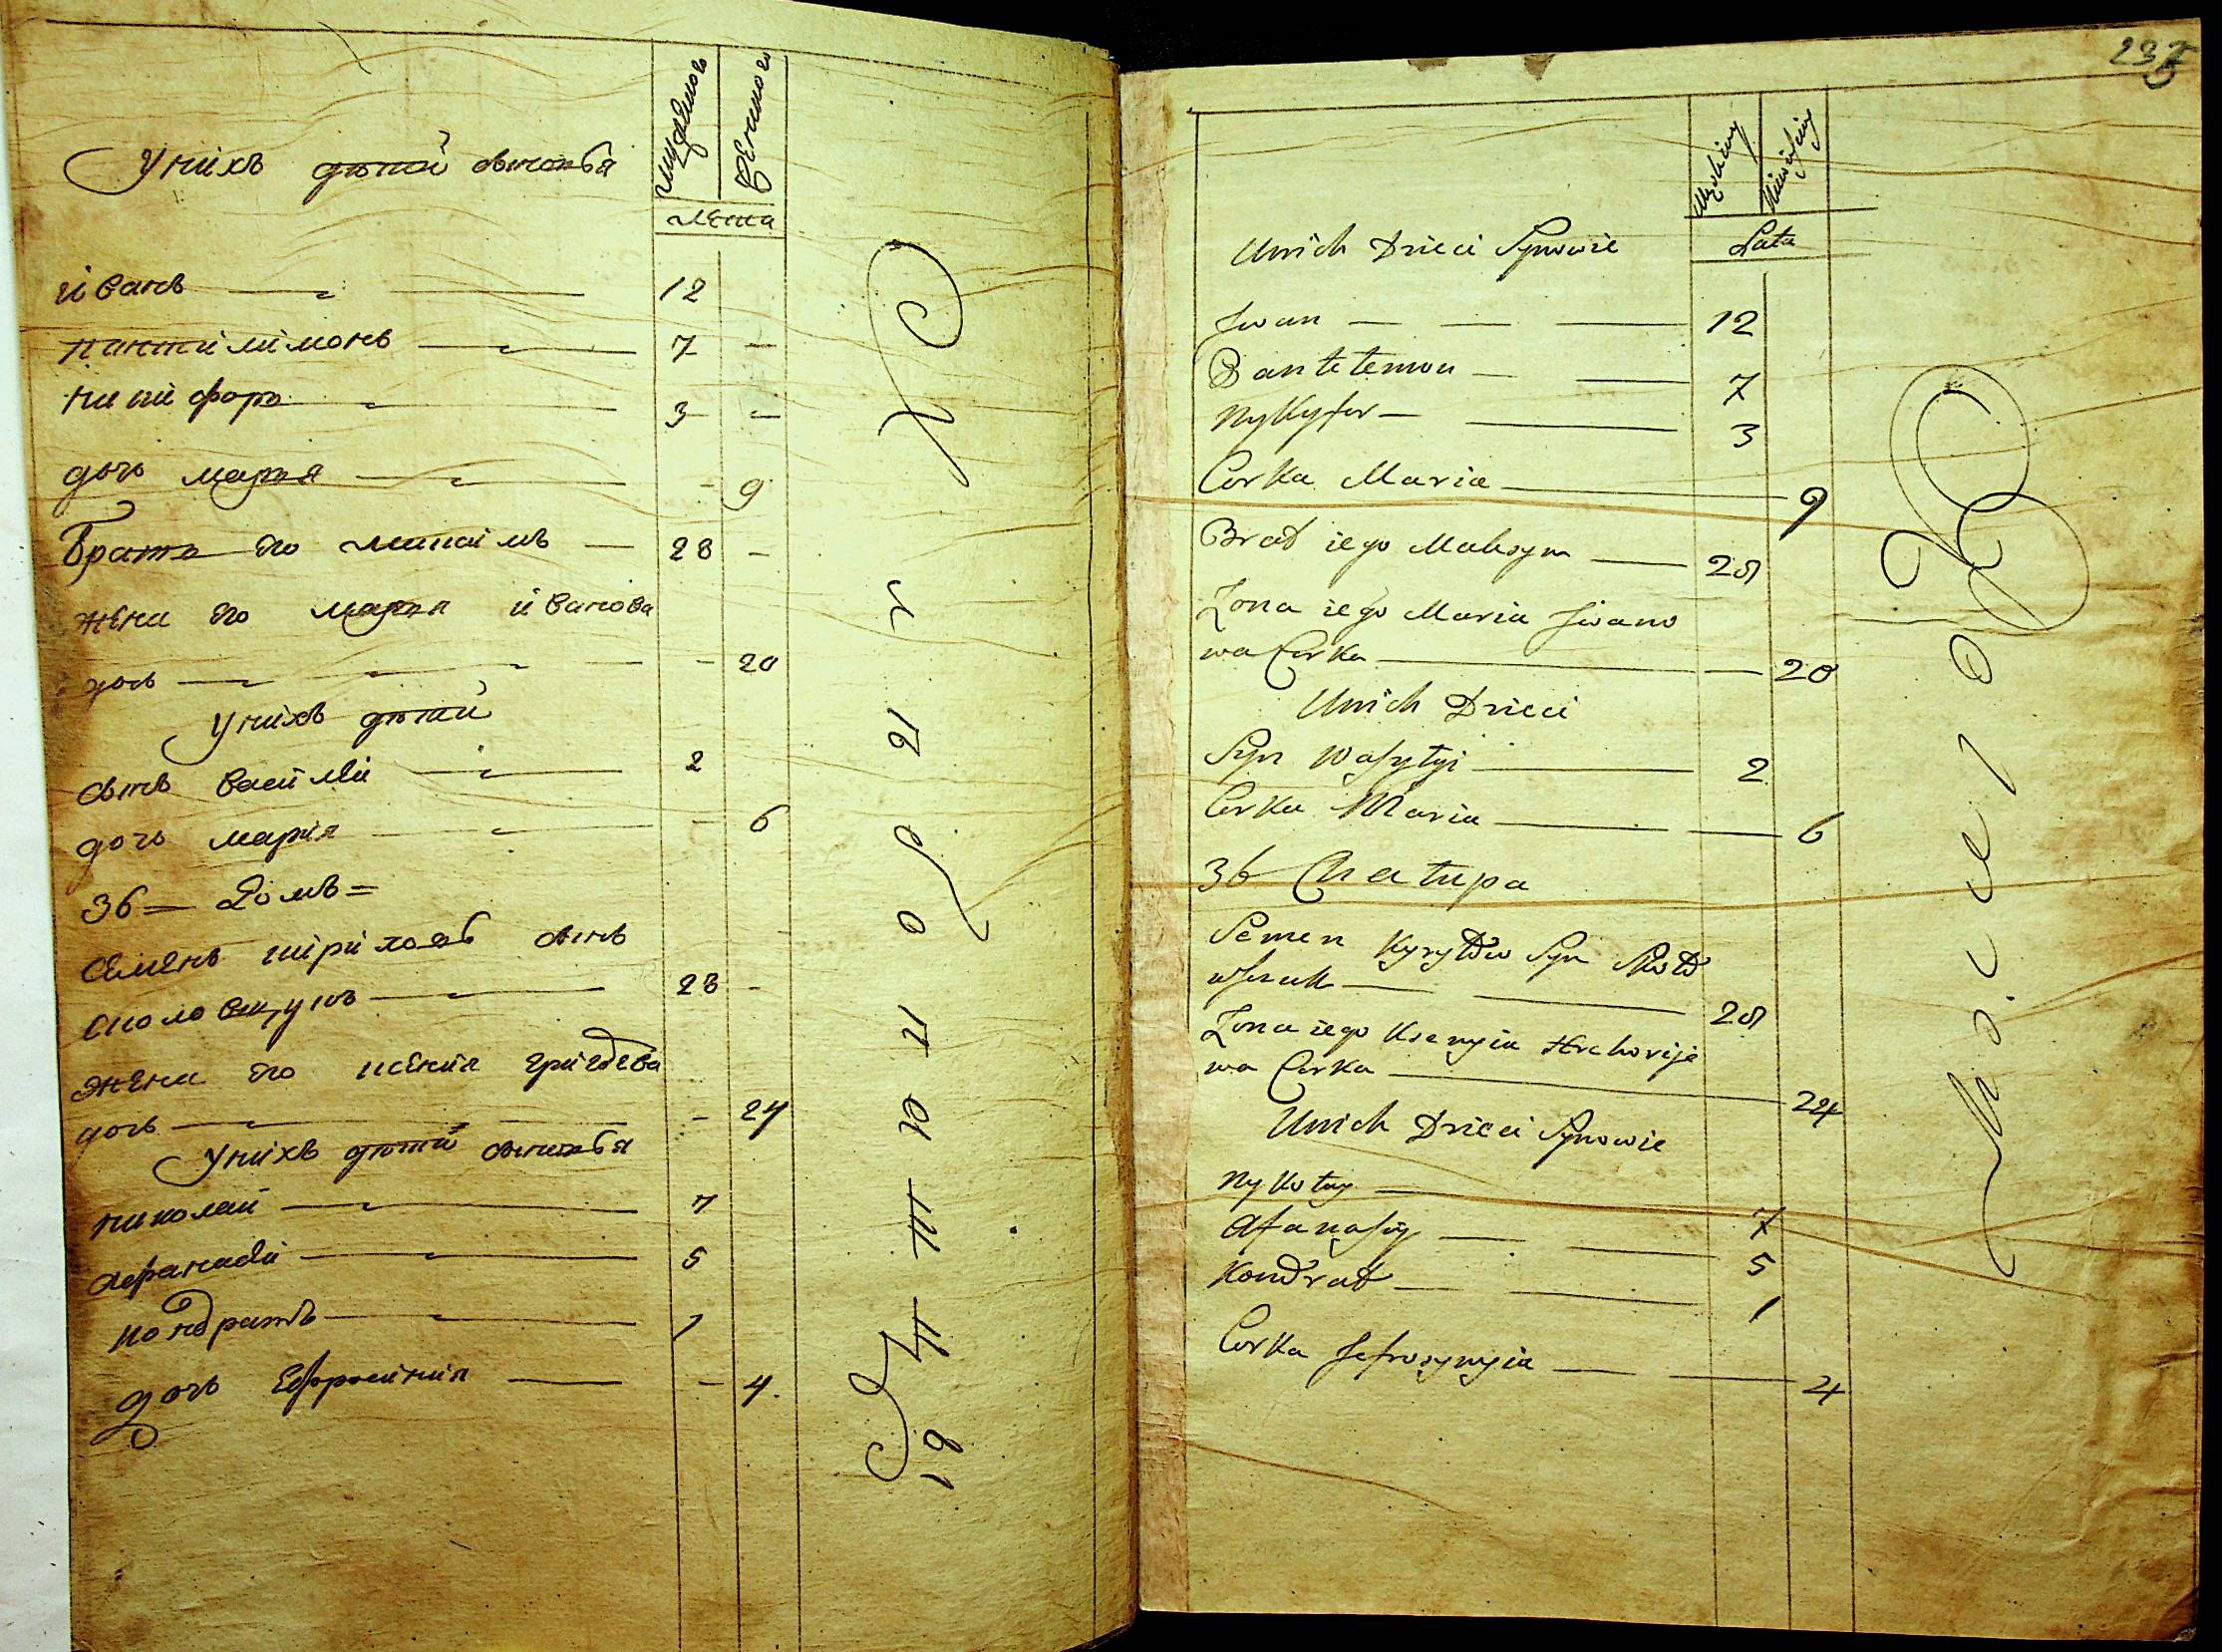 У нихъ дѣтей сыновья
мужеского
женского
лета
Иванъ 12
Пантилимонъ 7 -
Никифоръ 3 -
дочь Марья - 9
Братъ его 28 -
жена его Марья Иванова
дочь - 20
У нихъ дѣтей
сынъ Василій 2
дочь Марія - 6
36 = Домъ =
Семенъ Кириловъ сынъ
Сколовщукъ 28 -
жена его Ксенія Григорева
дочь - 24
У нихъ дѣтей сыновья
Николай 7
Афанасій 5
Кондратъ 1
дочь Ефросинія - 4
235
Unich Dzieci Synowie
Lata
Jwan 12
Pantelemon 7
Nykyfor 3
Corka Maria 9
Brat iego Maksym 28
Zona iego Maria Jwano
wa Corka 20
Unich Dzieci
Syn Wasylyi 2
Corka Maria 6
36 Chałupa
Semen Kyryłow Syn Skoło
wszuk 28
Zona iego Ksenyia Hrehorije
wa Corka 24
Unich Dzieci Synowie
Nykołay 7
Afanasiy 5
Kondrat 1
Corka Jefrosynyia 4